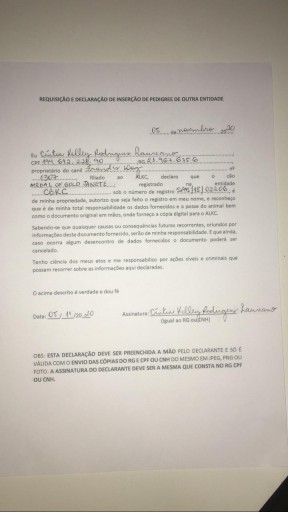 REQUISIÇÃO E DECLARAÇÃO DE INSERÇÃO DE PEDIGREE DE OUTRA ENTIDADE
05 novembro 20
Eu Cíntia Kelley Rodrigues
CPF RG 21.967.635 6
proprietário do canil nº
1367, filiado ao ALKC, declaro que o cão
MEDAL OF GOLD registrado na entidade
CBKC, sob o número de registro, é
de minha propriedade, autorizo que seja feito o registro em meu nome, e reconheço
que é de minha total responsabilidade os dados fornecidos e a posse do animal bem
como o documento original em mãos, onde forneço a cópia digital para o ALKC.
Sabendo-se que quaisquer causas ou consequências futuras recorrentes, oriundos por
informações deste documento fornecido, serão de minha responsabilidade. E que ainda,
caso ocorra algum desencontro de dados fornecidos o documento poderá ser
cancelado.
Tenho ciência dos meus atos e me responsabilizo por ações cíveis e criminais que
possam recorrer sobre as informações aqui declaradas.
O acima descrito é verdade e dou fé
Data: 05/11/2020 Assinatura: Cíntia Kelley Rodrigues
(Igual ao RG ou CNH)
OBS: ESTA DECLARAÇÃO DEVE SER PREENCHIDA A MÃO PELO DECLARANTE E SÓ É
VÁLIDA COM O ENVIO DAS CÓPIAS DO RG E CPF OU CNH DO MESMO EM JPEG, PNG OU
FOTO. A ASSINATURA DO DECLARANTE DEVE SER A MESMA QUE CONSTA NO RG, CPF
OU CNH.